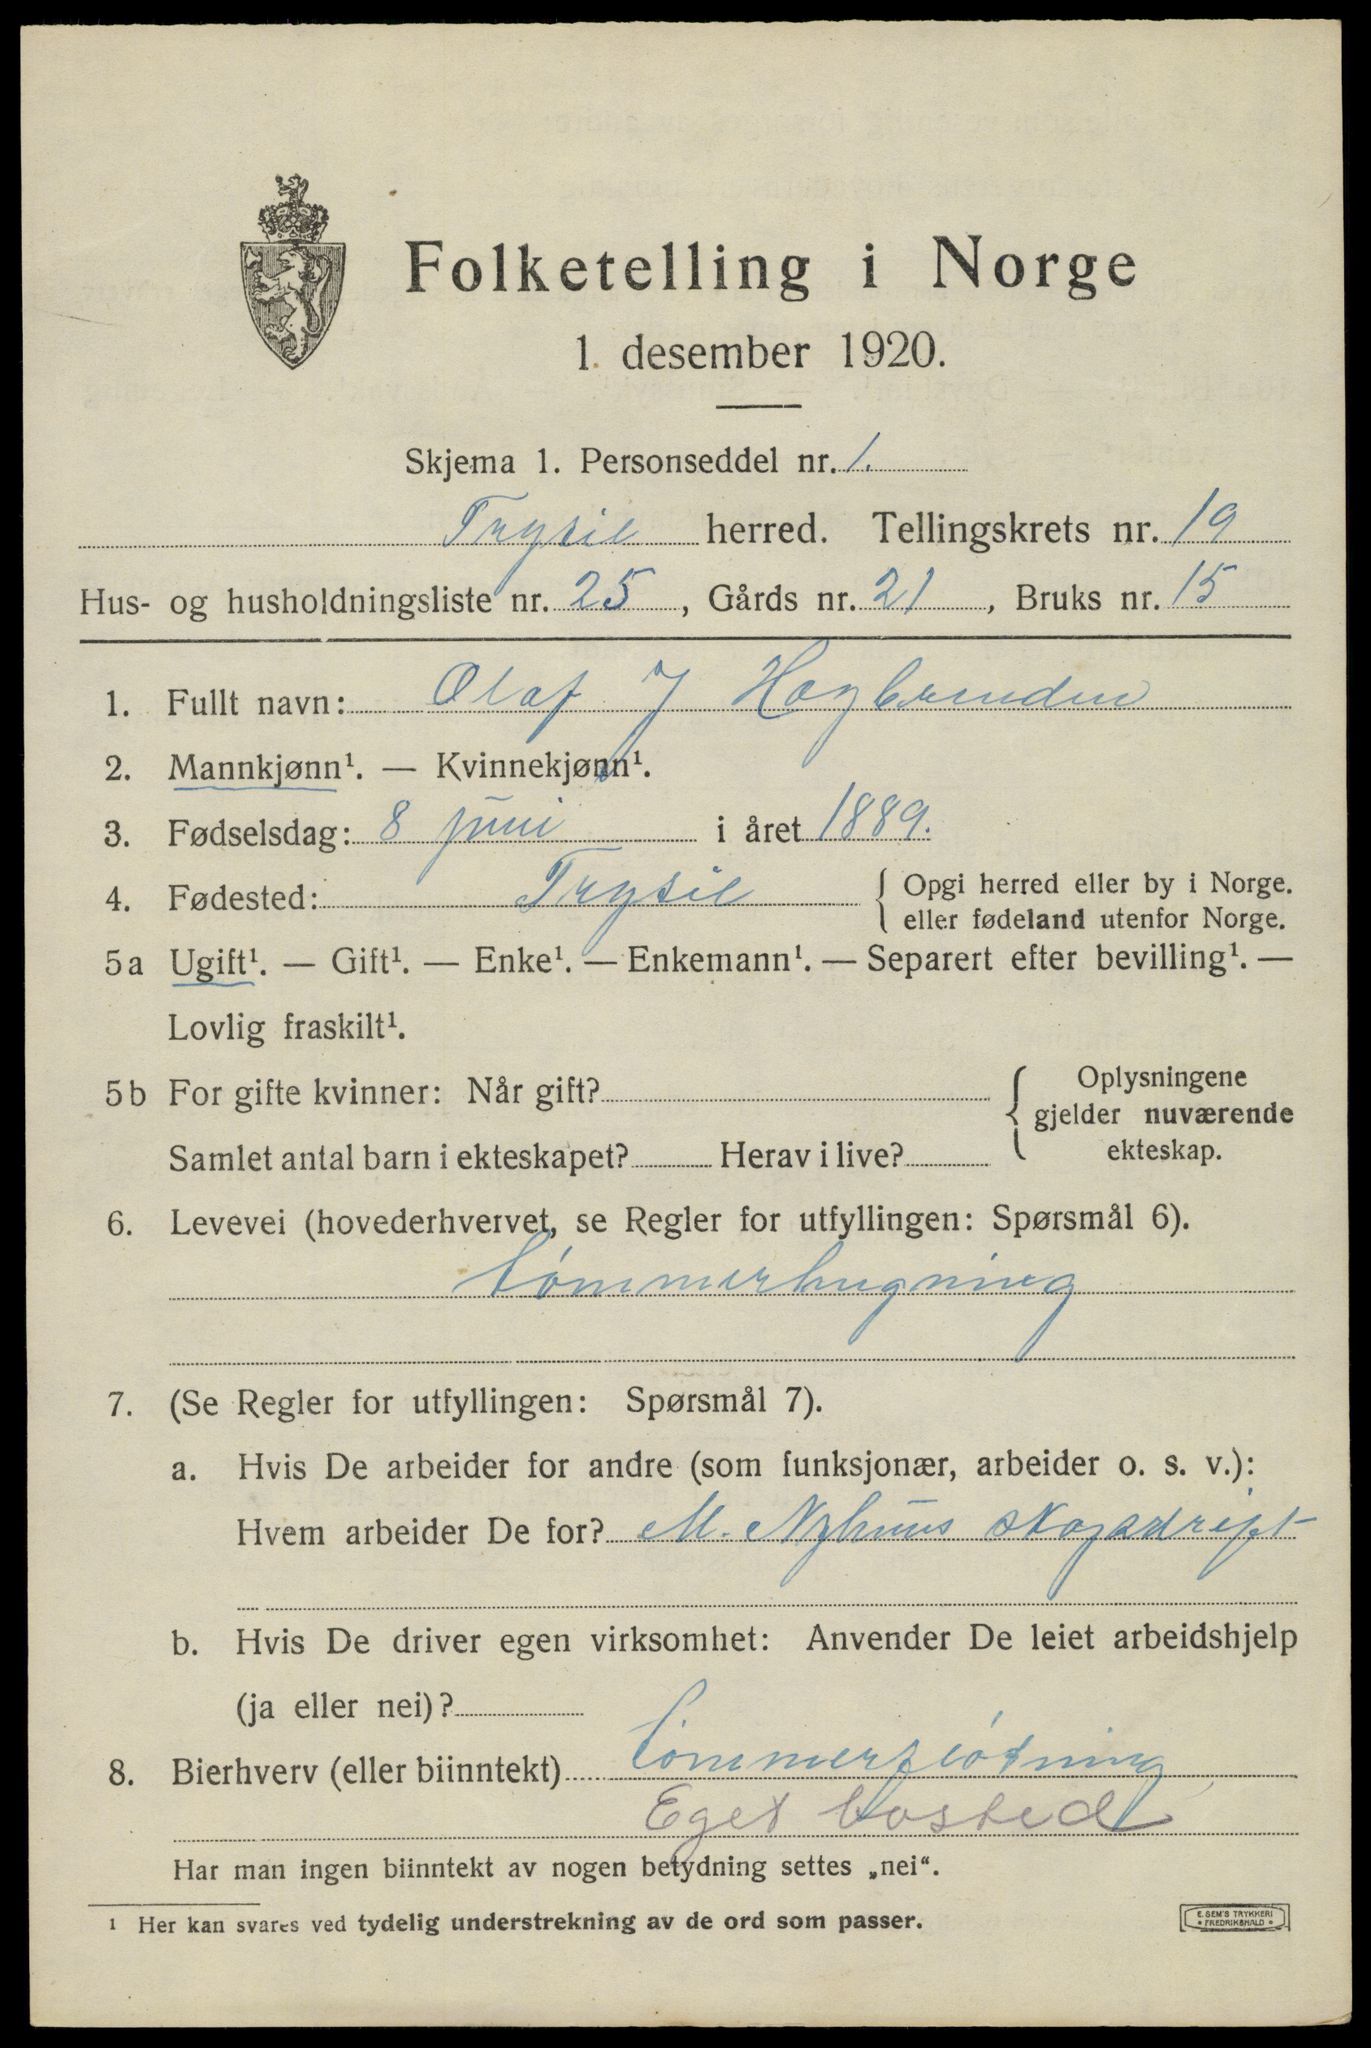 Folketelling i Norge
1. desember 1920.
Skjema 1. Personseddel nr. 1.
Trysil herred. Tellingskrets nr. 19
Hus- og husholdningsliste nr. 25, Gårds nr. 21, Bruks nr. 15
1. Fullt navn: Olaf J Hogbrenden
2. Mannkjønn¹. — Kvinnekjønn¹.
3. Fødselsdag: 8 juni i året 1889.
4. Fødested: Trysil { Opgi herred eller by i Norge.
eller fødeland utenfor Norge.
5a Ugift¹. — Gift¹. — Enke¹. — Enkemann¹. — Separert efter bevilling¹. —
Lovlig fraskilt¹.
5b For gifte kvinner: Når gift? { Oplysningene
gjelder nuværende
Samlet antal barn i ekteskapet? Herav i live? ekteskap.
6. Levevei (hovederhvervet, se Regler for utfyllingen: Spørsmål 6).
tømmerhugning
7. (Se Regler for utfyllingen: Spørsmål 7).
a. Hvis De arbeider for andre (som funksjonær, arbeider o. s. v.):
Hvem arbeider De for? M. Nyhuus skogsdrift
b. Hvis De driver egen virksomhet: Anvender De leiet arbeidshjelp
(ja eller nei)?
8. Bierhverv (eller biinntekt) tømmerfløtning
Eget bosted
Har man ingen biinntekt av nogen betydning settes „nei“.
¹ Her kan svares ved tydelig understrekning av de ord som passer.
E. SEM'S TRYKKERI
FREDRIKSHALD